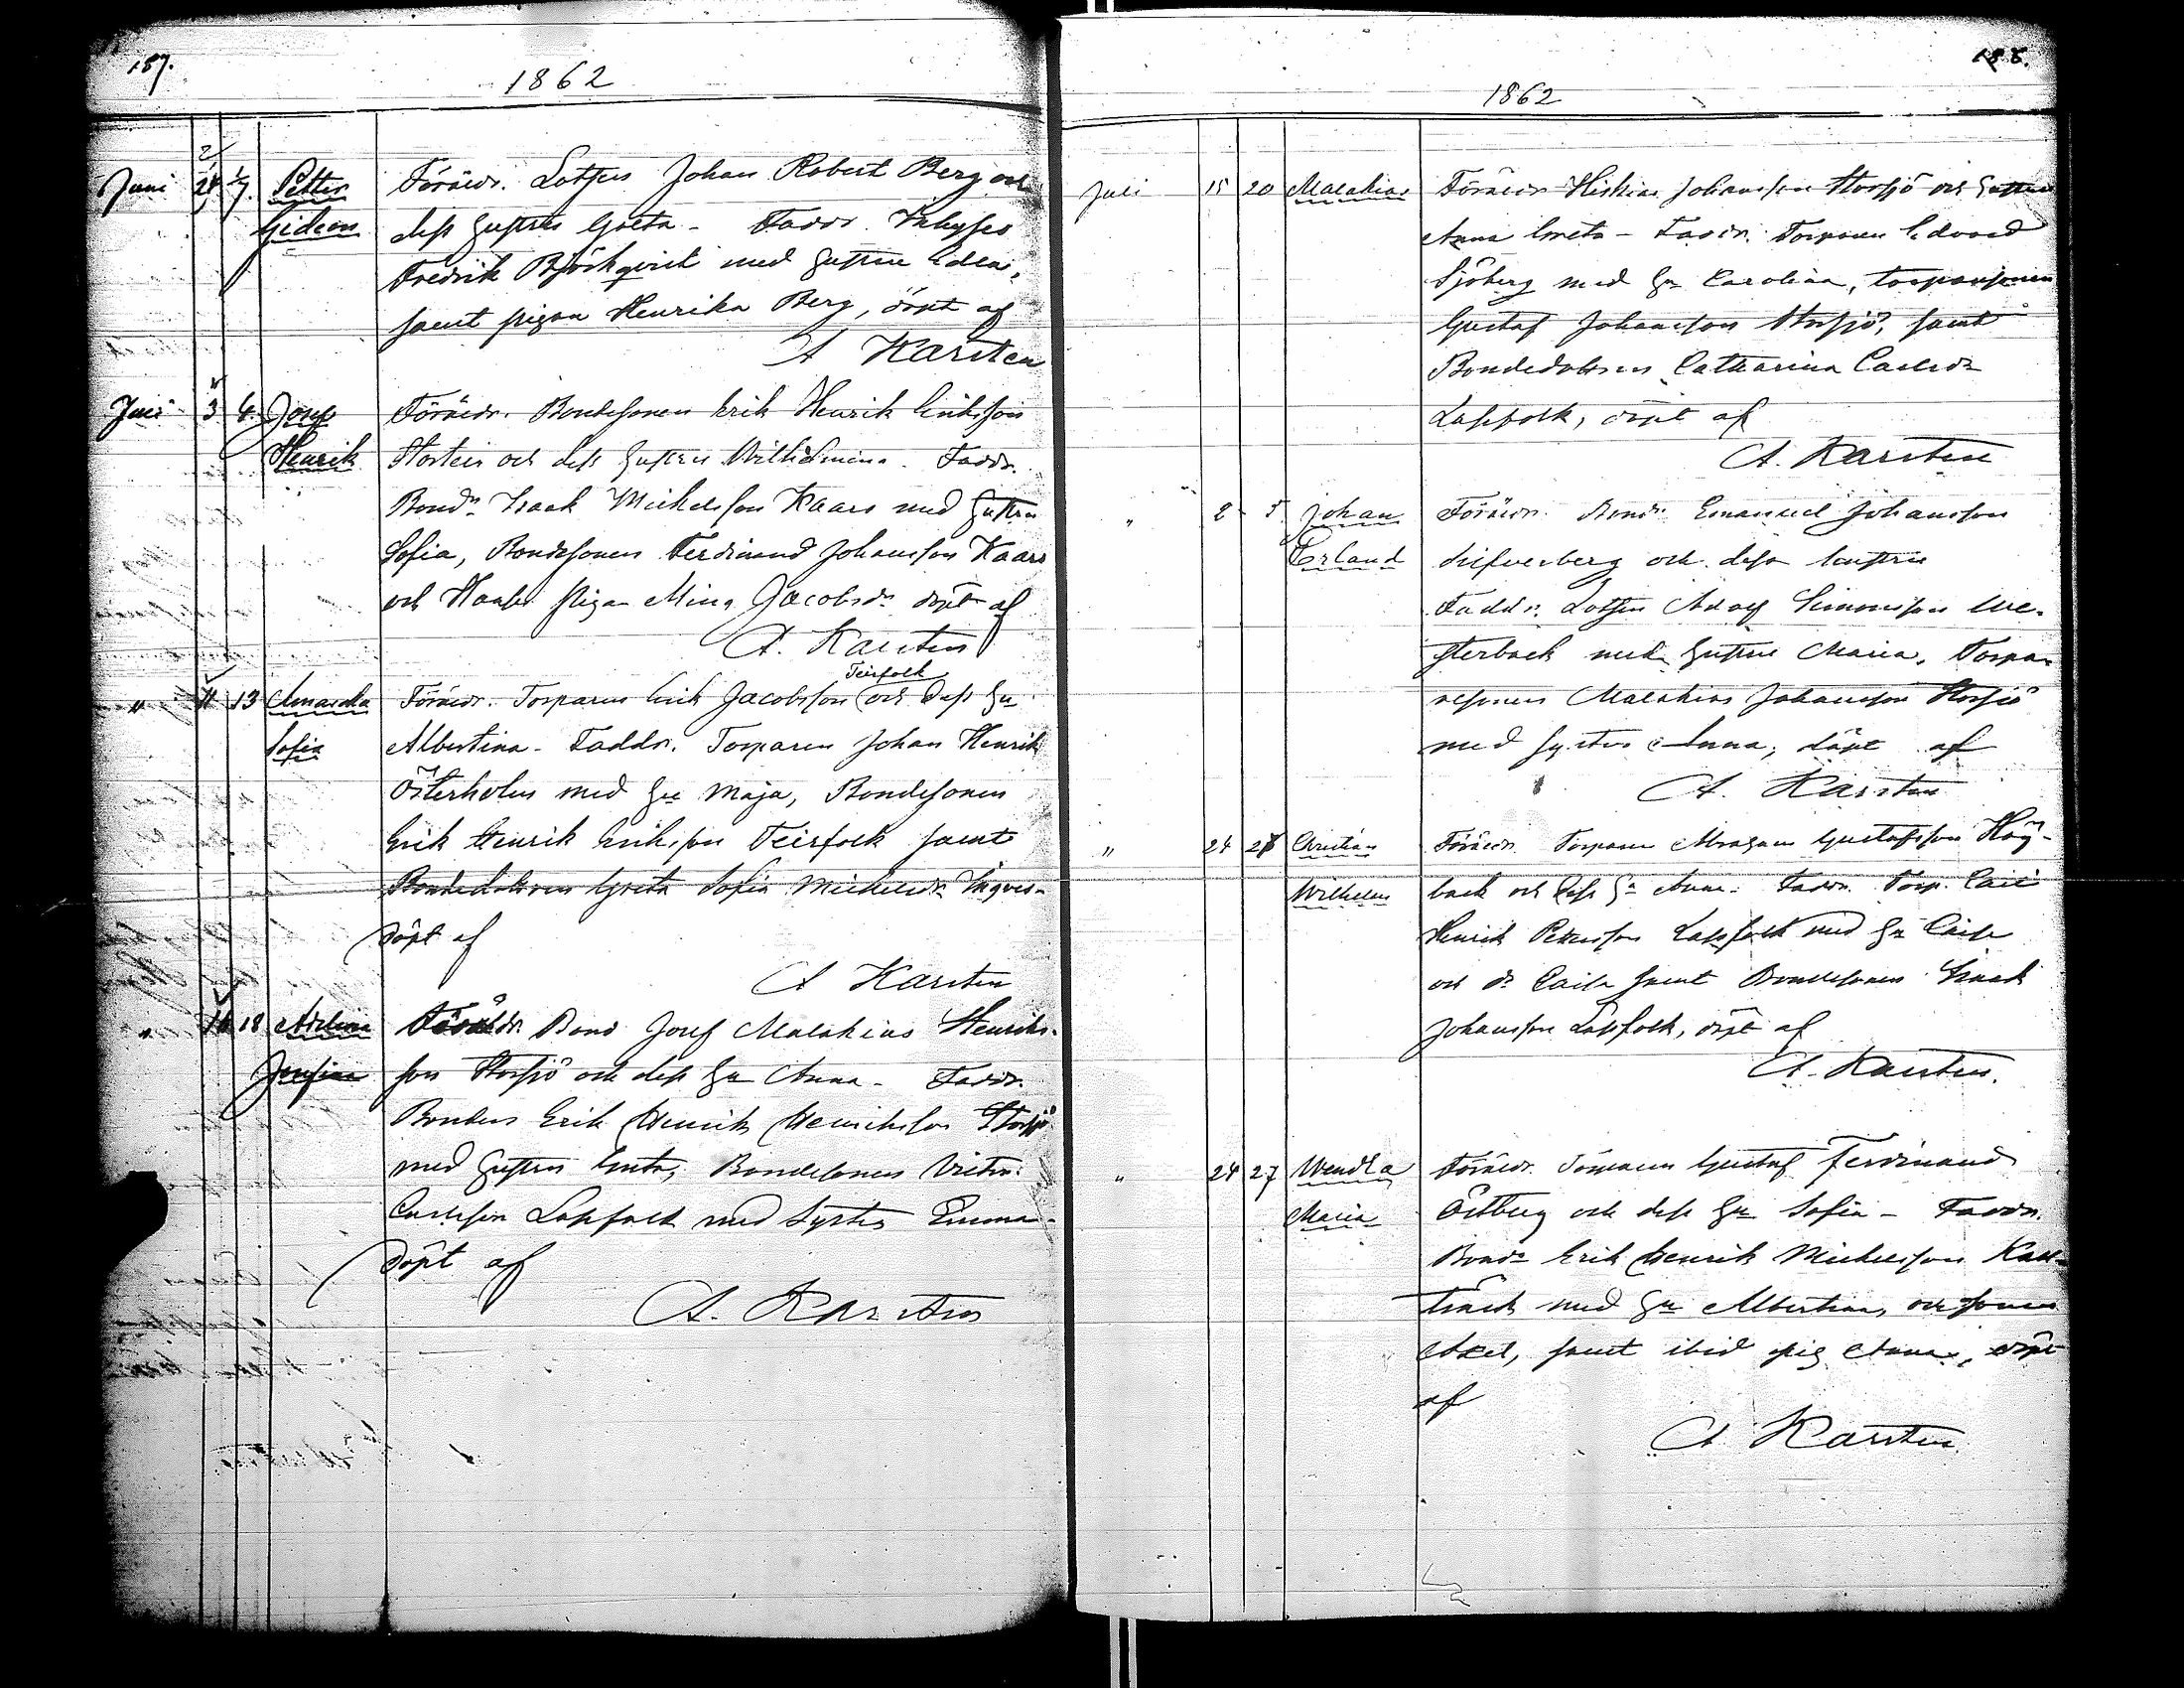 187.
1862
Juni 24 1/7. Petter Föräldr. Lotsen Johan Robert Berg och
Gideon dess hustru Greta - Faddr. Inhyses
Fredrik Björkqvist med hustru Edla,
samt pigan Henrika Berg, döpt af
A Karsten
Juli 3 6. Josef Föräldr. Bondesonen Erik Henrik Eriksson
Henrik och dess hustru Wilhelmina. Faddr.
Bondn Isaak Mickelsson Kaars med hustru
Sofia, Bondesonen Ferdinand Johansson Kaars
och pigan Mina Jacobsdr döpt af
A. Karsten
Teirfolk
" 11 13 Amanda Föräldr. Torparen Erik Jacobsson och dess hu
Sofia Albertina - Faddr. Torparen Johan Henrik
Österholm med hu Maja, Bondesonen
Erik Henrik Eriksson Teirfolk samt
Bondedottren Greta Sofia Mickelsdr Ingves-
döpt af
A Karsten
" 16 18 Adelina Föräldr. Bond Josef Malakias Henriks-
Josefina son Storsjö och dess hu Anna - Faddr.
Bonden Erik Henrik Henriksson Storsjö
med hustru Greta, Bondesonen Victor
Carlsson Lapfolk med Syster Emma-
döpt af
A. Karsten
188.
1862
Juli 15 20 Malakias Föräldr Hiskias Johansson Storsjö och hustru
Anna Greta - Faddr. Torparen Edvard
Sjöberg med hu Carolina, torparsonen
Gustaf Johansson Storsjö, samt
Bondedottren Catharina Carlsdr
Lapfolk, döpt af
A. Karsten
" 2 5 Johan Föräldr. Bondn Emanuel Johansson
Erland Silfverberg och dess hustru
Faddr. Lotsen Adolf Simonsson We-
sterback med hustru Maria, Torpa-
resonen Malakias Johansson Storsjö
med syster Anna, döpt af
A. Karsten
" 24 27 Christian Föräldr. Torparen Abraham Gustafsson Hög-
Wilhelm back och dess hu Anna - Faddr. Torp. Carl
Henrik Pettersson Lapfolk med hu Caisa
och dr Caisa samt Bondesonen Isaak
Johansson Lapfolk, döpt af
A. Karsten.
" 24 27 Wendla Föräldr. Torparen Gustaf Ferdinand
Maria Östberg och dess hu Sofia - Faddr.
Bondn Erik Henrik Mickelsson
med hu Albertina, och sonen
Axel, samt ibid pig Anna, döpt
af
A Karsten.